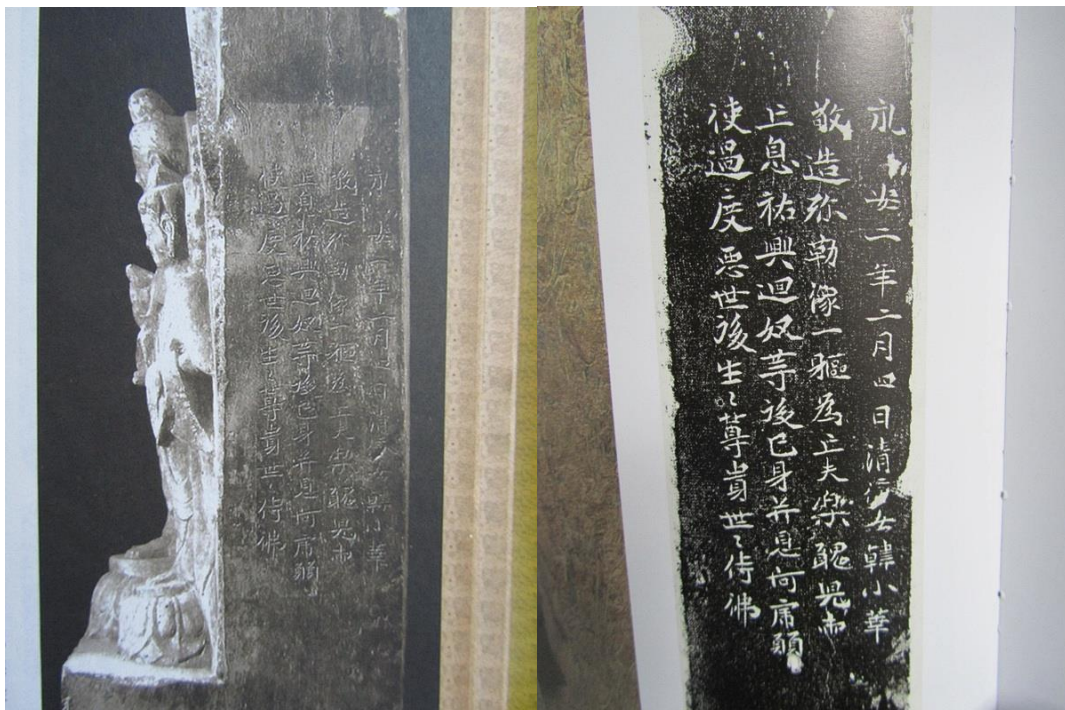 永安二年二月四日清信女韓小華
敬造弥勒像一軀為亡夫樂醜兒与
亡息祐興迴奴等後己身并息阿虎願
使過度惡世後生〻尊貴世〻侍佛
永安二年二月四日清信女韓小華
敬造弥勒像一軀為亡夫樂醜兒与
亡息祐興迴奴等後己身并息阿虎願
使過度惡世後生〻尊貴世〻侍佛